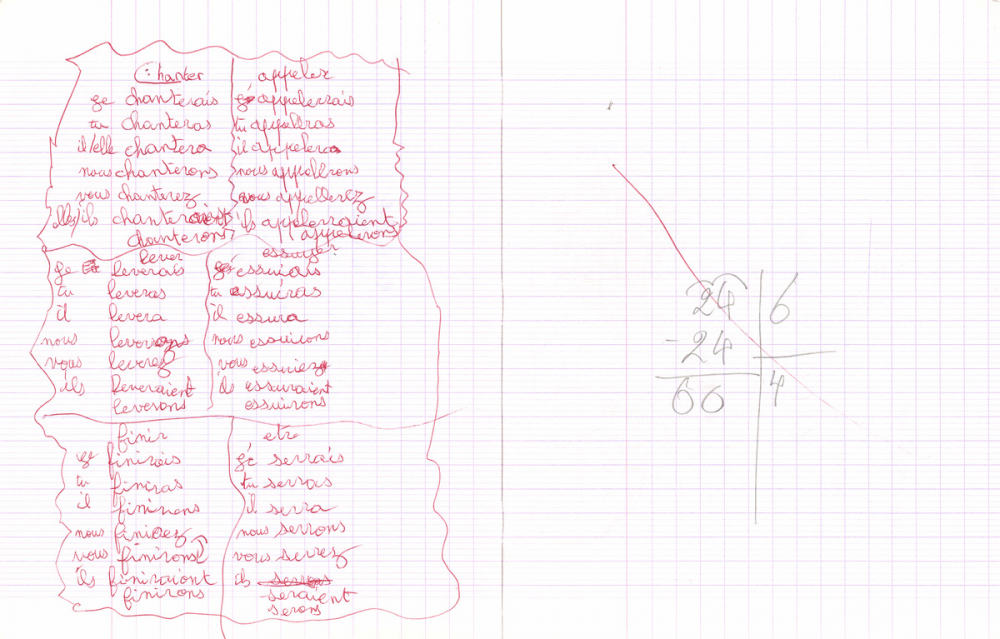 Chanter
ge chanterais
tu chanteras
il/elle chantera
nous chanterons
vous chanterez
elles/ils chanteraient
chanterons
appeler
g'appelerrais
tu appelras
il appelera
nous appellrons
vous appellerez
ils appelerraient
appelerons
lever
ge leverais
tu leveras
il levera
nous leverons
vous leverez
ils leveraient
leverons
essuyer
g'essuiais
tu essuiras
il essura
nous essuirons
vous essuirez
ils essuraient
essuirons
finir
ge finirais
tu finiras
il finirons
nous finirez
vous finirons
ils finiraient
finirons
etre
ge serrais
tu serras
il serra
nous serrons
vous serrez
ils serrons
seraient
serons
24 6
-24
00 4